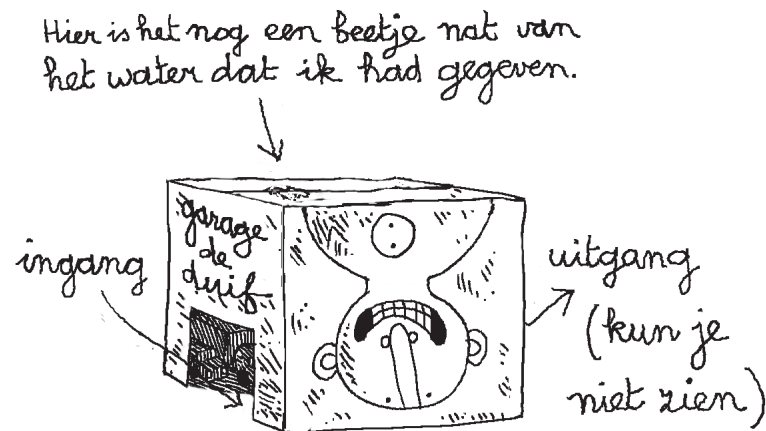 Hier is het nog een beetje nat van
het water dat ik had gegeven.
garage
de
duif
ingang
uitgang
(kun je
niet zien)